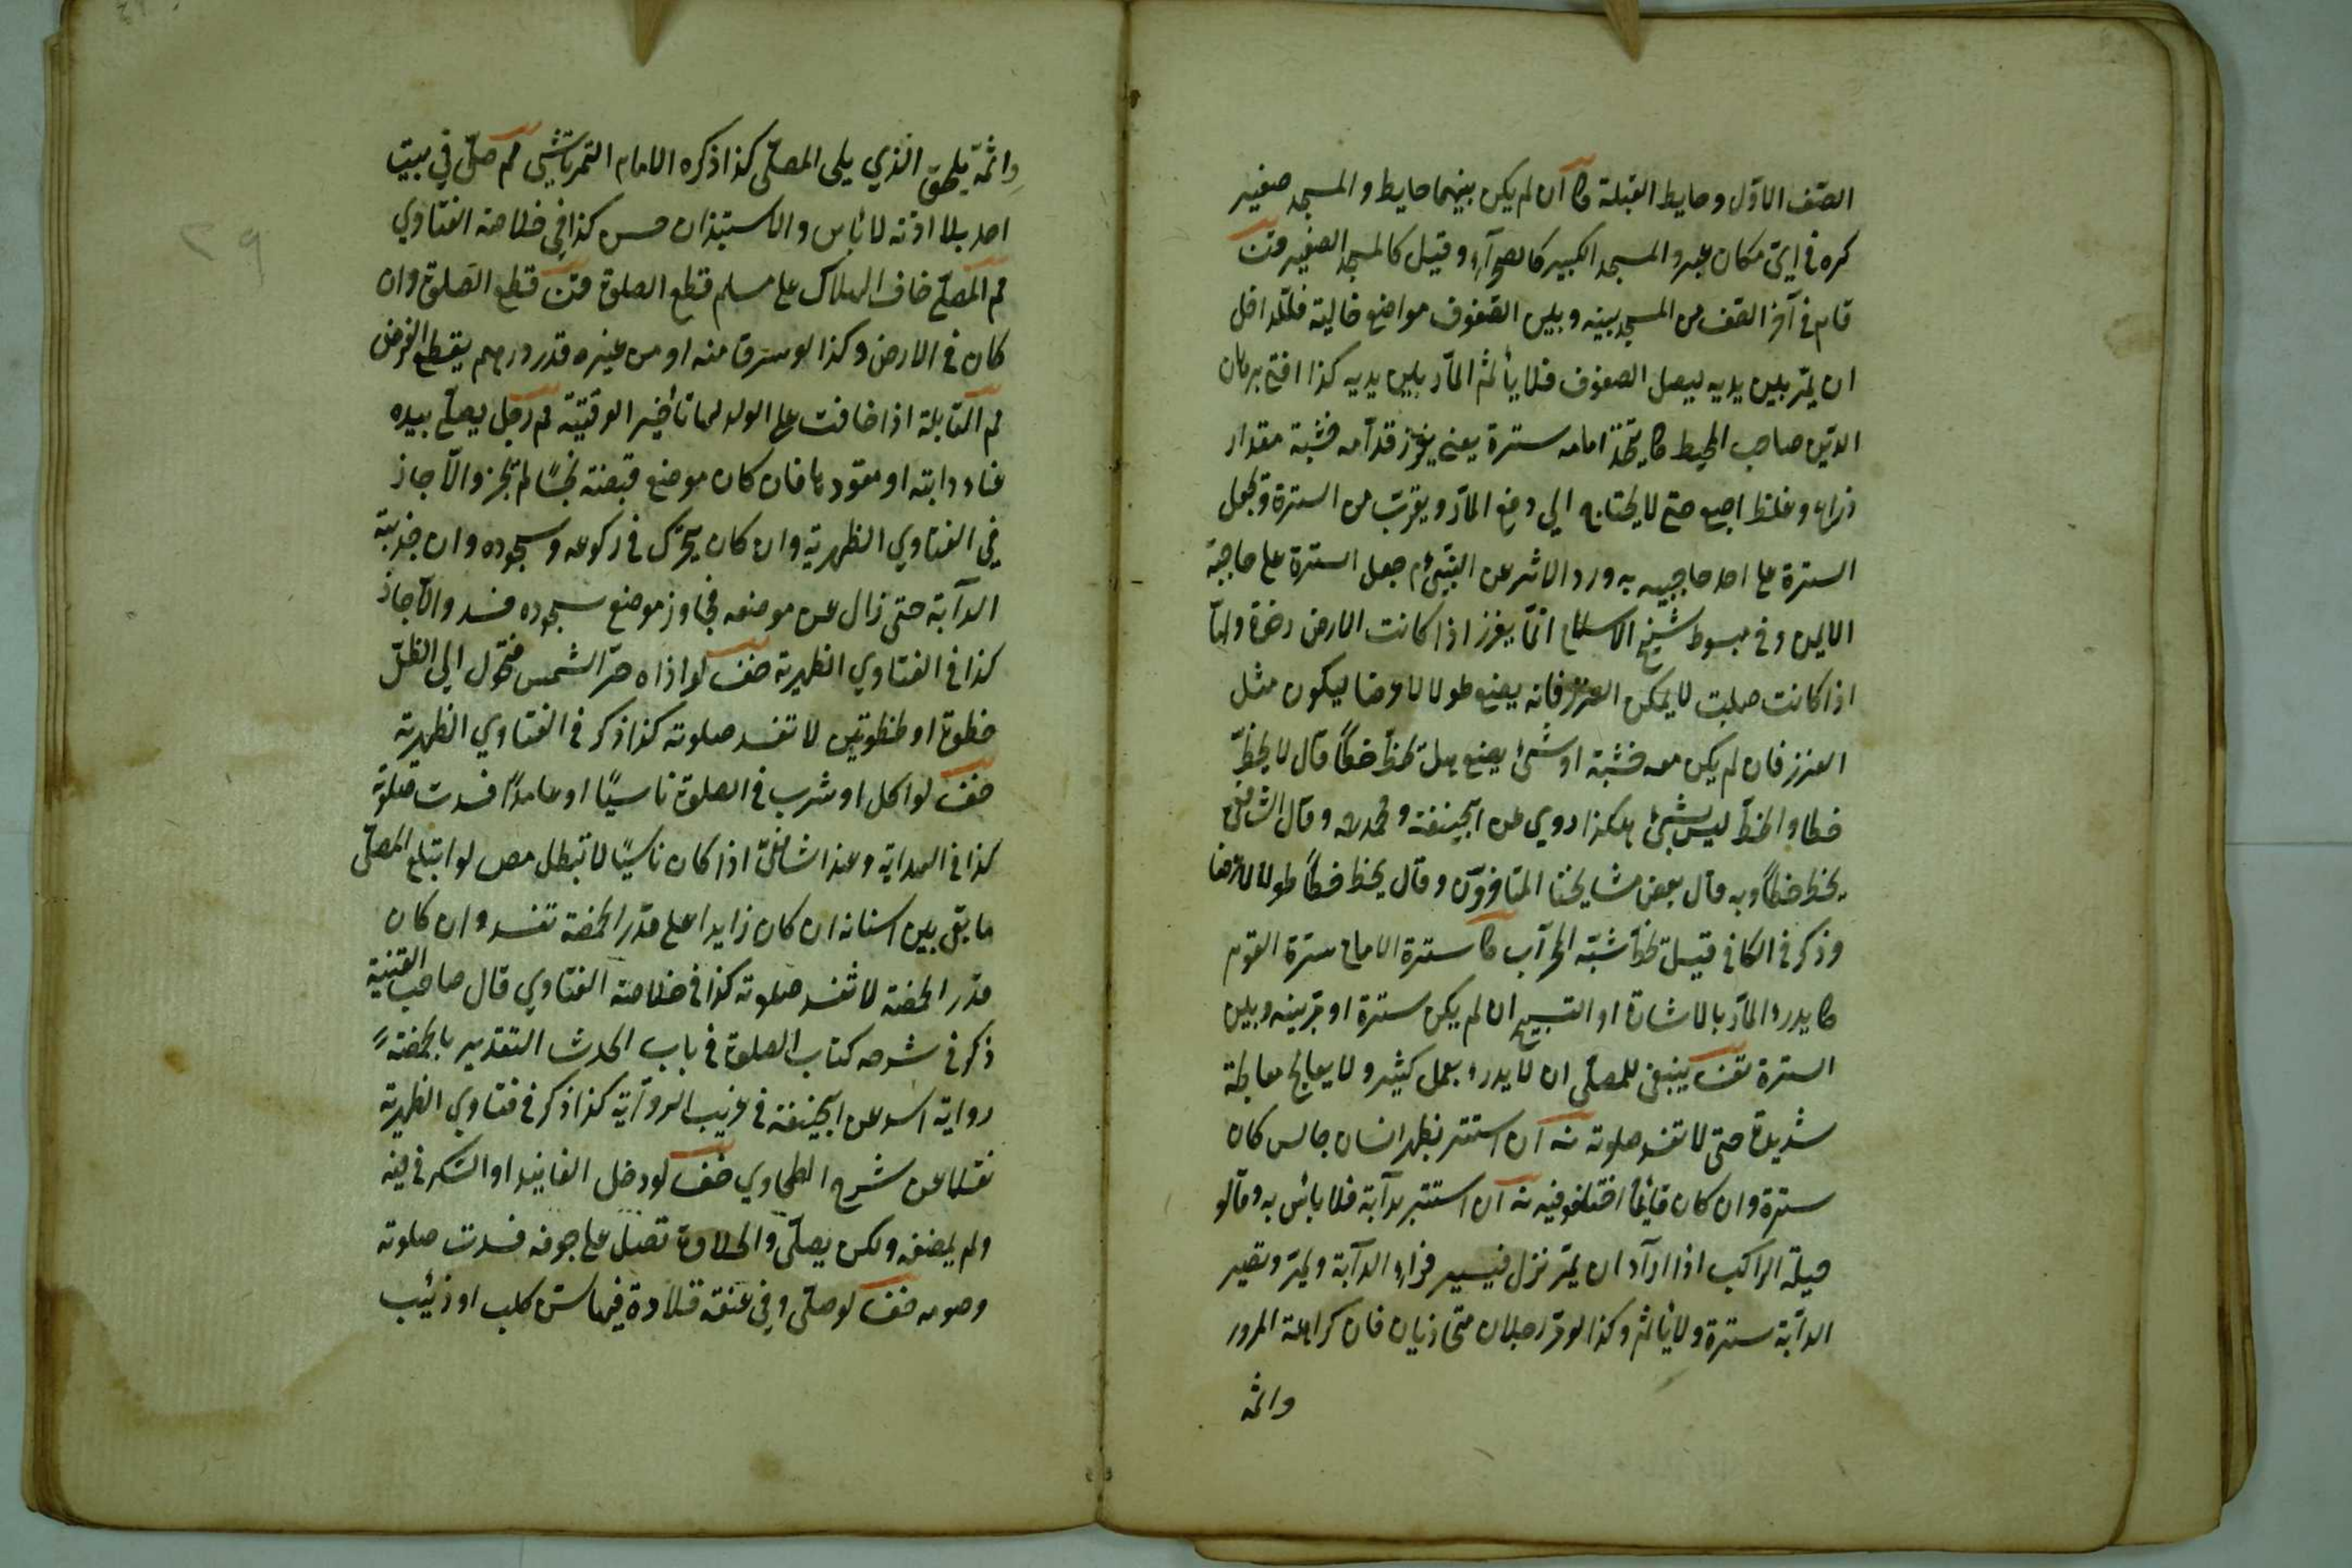 الصّف الاوّل وحايط القبلة كا ان لم يكن بينهما حايط والمسجد صغير
كره في ايّ مكان عبر والمسجد الكبير كالصحرآء وقيل كالمسجد الصغير قن
قام في آخر الصّف من المسجد بينه وبين الصّفوف مواضع خالية فللداخل
ان يمرّ بين يديه ليصل الصفوف فلا يأثم المارّ بين يديه كذا افتى برهان
الدّين صاحب المحيط كا يتّخذ امامه سترة يعني يغرز قدّامه خشبة مقدار
ذراع وغلظ اصبع حتى لا يحتاج الى دفع المارّ ويقرب من السترة ويجعل
السترة على احد حاجبيه به ورد الاثر عن النّبيّ م جعل السترة على حاجبه
الايمن وفي مبسوط شيخ الاسلام انمّا يغرز اذا كانت الارض رخوة وامّا
اذا كانت صلبت لا يمكن الغرز فانه يضع طولا لا عرضا ليكون مثل
الغرز فان لم يكن معه خشبة او شئ يضع هل يخطّ خطّا قال لا يخطّ
خطا والخطّ ليس بشئ هكذا روي عن ابيحنيفة ومحمد وقال الشافعيّ
يخطّ خطّا وبه قال بعض مشايخنا المتأخرون وقال يخط خطّا طولا لا عرضا
وذكر في الكافي قيل خطّا شبه المحرآب كا سترة الامام سترة القوم
كا يدرو المارّ بالاشارة او التسبيح ان لم يكن سترة او مرّ بينه وبين
السترة تف ينبغي للمصلّى ان لا يدرء بعمل كثير ولا يعالج معالجة
شديدة حتى لا تفسد صلوته نه ان استتر بظهر انسان جالس كان
سترة وان كان قائما اختلفو فيه نه ان استتر بدآبة فلا بائس به وقالو
حيلة الراكب اذا ارآد ان يمرّ نزل فيسير وراء الدآبة ويمرّ وتصير
الدآبة سترة ولا يأثم وكذا لو مرّ رجلان متحاذيان فان كراهة المرور
واثمه
واثمه يلحق الذي يلي المصلّى كذا ذكره الامام التمرتاشي م صلّى في بيت
احد بلا اذنه لا بأس والاستيذان حسن كذا في خلاصة الفتاوي
م المصلّى خاف الهلاك على مسلم قطع الصلوة قن قطع الصّلوة وان
كان في الارض وكذا لو سرق منه او من غيره قدر درهم يقطع الفرض
م القابلة اذا خافت على الولد لها تأخير الوقتيّة م رجل يصلّي بيده
عنان دابته او مقودها فان كان موضع قبضته نجسا لم يجز والّا جاز
في الفتاوي الظهرية وان كان يتحرّك في ركوعه وسجوده وان جذبته
الدآبة حتى زال عن موضعه فجاوز موضع سجوده فسد والّا جاز
كذا في الفتاوي الظهيرية خف لو اذاه حرّ الشمس فتحوّل الى الظلّ
خطوة او خطوتين لا تفسد صلوته كذا ذكر في الفتاوي الظهرية
خف لو اكل او شرب في الصلوة ناسيًا او عامدًا فسدت صلوته
كذا في الهداية وعند الشافعيّ اذا كان ناسيًا لا تبطل مص لو ابتلع المصلّى
ما بقى بين اسنانه ان كان زايدا على قدر الحمصة تفسد وان كان
قدر الحمصة لا تفسد صلوته كذا في خلاصة الفتاوي قال صاحب القنية
ذكر في شرحه كتاب الصلوة في باب الحدث التقدير بالحمصة
رواية اسد عن ابيحنيفة في غريب الروآية كذا ذكر في فتاوي الظهرية
نقلا عن شرح الطحاوي خف لو دخل الفانيد او السّكر في فيه
ولم يمضغه ولكن يصلّى والحلاوة تصل على جوفه فسدت صلوته
وصومه خف لو صلّى وفي عنقه قلادة فيها سنّ كلب او ذئيب
٢٩